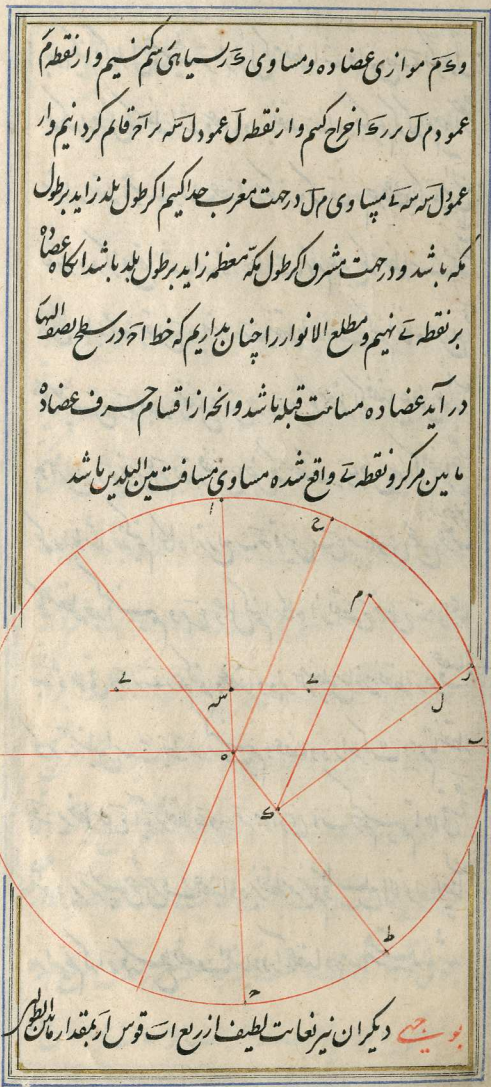 و ک م موازی عضاده و مساوی ک ر سیاهی رسم کنیم و از نقطه م
عمود م ل بر ر ک اخراج کنیم و از نقطه ل عمود ل سه بر اح قائم کردانیم و از
عمود ل سه سه ے مساوی م ل در جهت مغرب جدا کنیم اکر طول بلد زاید بر طول
مکه باشد و در جهت مشرق اکر طول مکه معظمه زاید بر طول بلد باشد انکاه عضاده
بر نقطه ے نهیم و مطلع الانوار را چنان بداریم که خط اح در سطح نصف النهار
در آید عضاده مسامت قبله باشد و انچه از اقسام حرف عضاده
ما بین مرکز و نقطه ے واقع شده مساوی مسافت بین البلدین باشد
ا
ح
م
ر
ے
سه
ے
ل
ب
ه
ک
ط
ح
بوجهی دیکر ان نیز بغایت لطیف از ربع اب قوس ار بمقدار ما بین الطولین